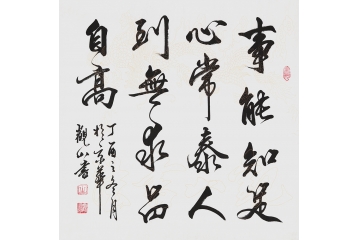 事能知足
心常泰人
到無求品
自高
丁酉之冬月
於京華
觀山書